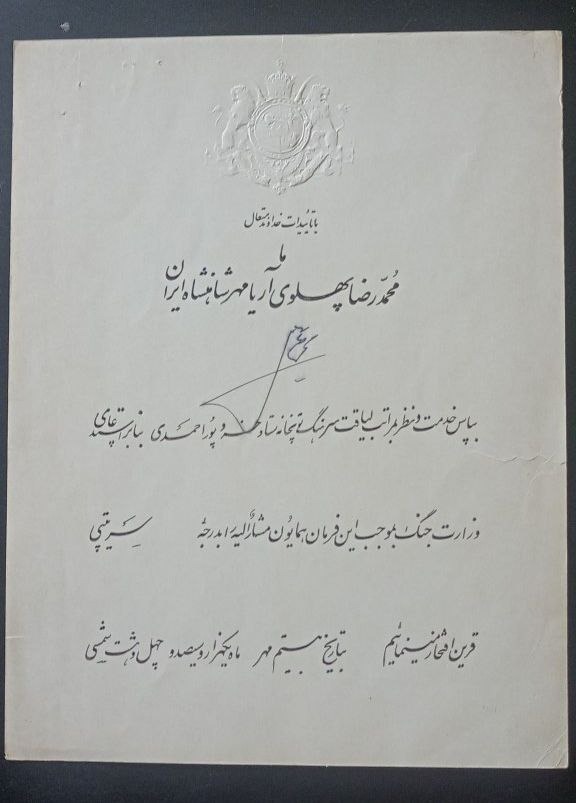 با تاییدات خداوند متعال
ما
محمدرضا پهلوی آریامهر شاهنشاه ایران
بپاس خدمت و نظر بمراتب لیاقت سرهنگ توپخانه ستاد پوراحمدی بنا بر استدعای
وزارت جنگ بموجب این فرمان همایون مشارالیه را بدرجه سرتیپی
قرین افتخار میفرمائیم بتاریخ بیستم مهر ماه یکهزار و سیصد و چهل و هشت شمسی